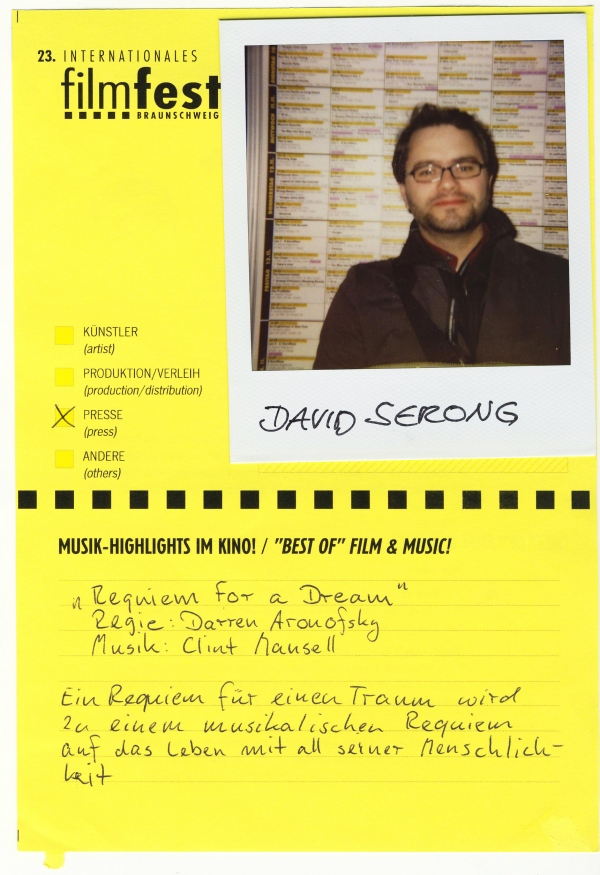 23. INTERNATIONALES
filmfest
BRAUNSCHWEIG
KÜNSTLER
(artist)
PRODUKTION/VERLEIH
(production/distribution)
PRESSE
(press)
ANDERE
(others)
DAVID SERONG
MUSIK-HIGHLIGHTS IM KINO! / "BEST OF" FILM & MUSIC!
„Requiem for a Dream"
Regie: Darren Aronofsky
Musik: Clint Mansell
Ein Requiem für einen Traum wird
zu einem musikalischen Requiem
auf das Leben mit all seiner Menschlich-
keit